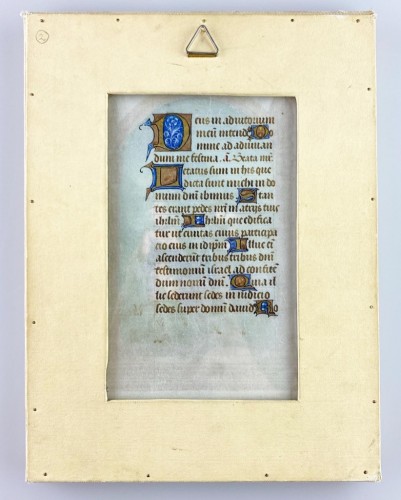 Deus in adiutorium
meū intende Do
mine ad adiuuan
dum me festina. a. Beata mr̄
Letatus sum in his que
dicta sunt michi in do
mum dn̄i ibimus Stan
tes erant pedes nr̄i in atrijs tuis
ihrl̄m Ihrl̄m que edifica
tur ut ciuitas cuius participa
tio eius in idip̄m Illuc en̄
ascenderūt tribus tribus dn̄i
testimoniū israel ad confitē
dum nomini dn̄i Quia il
lic sederunt sedes in iudicio
sedes super domū dauid